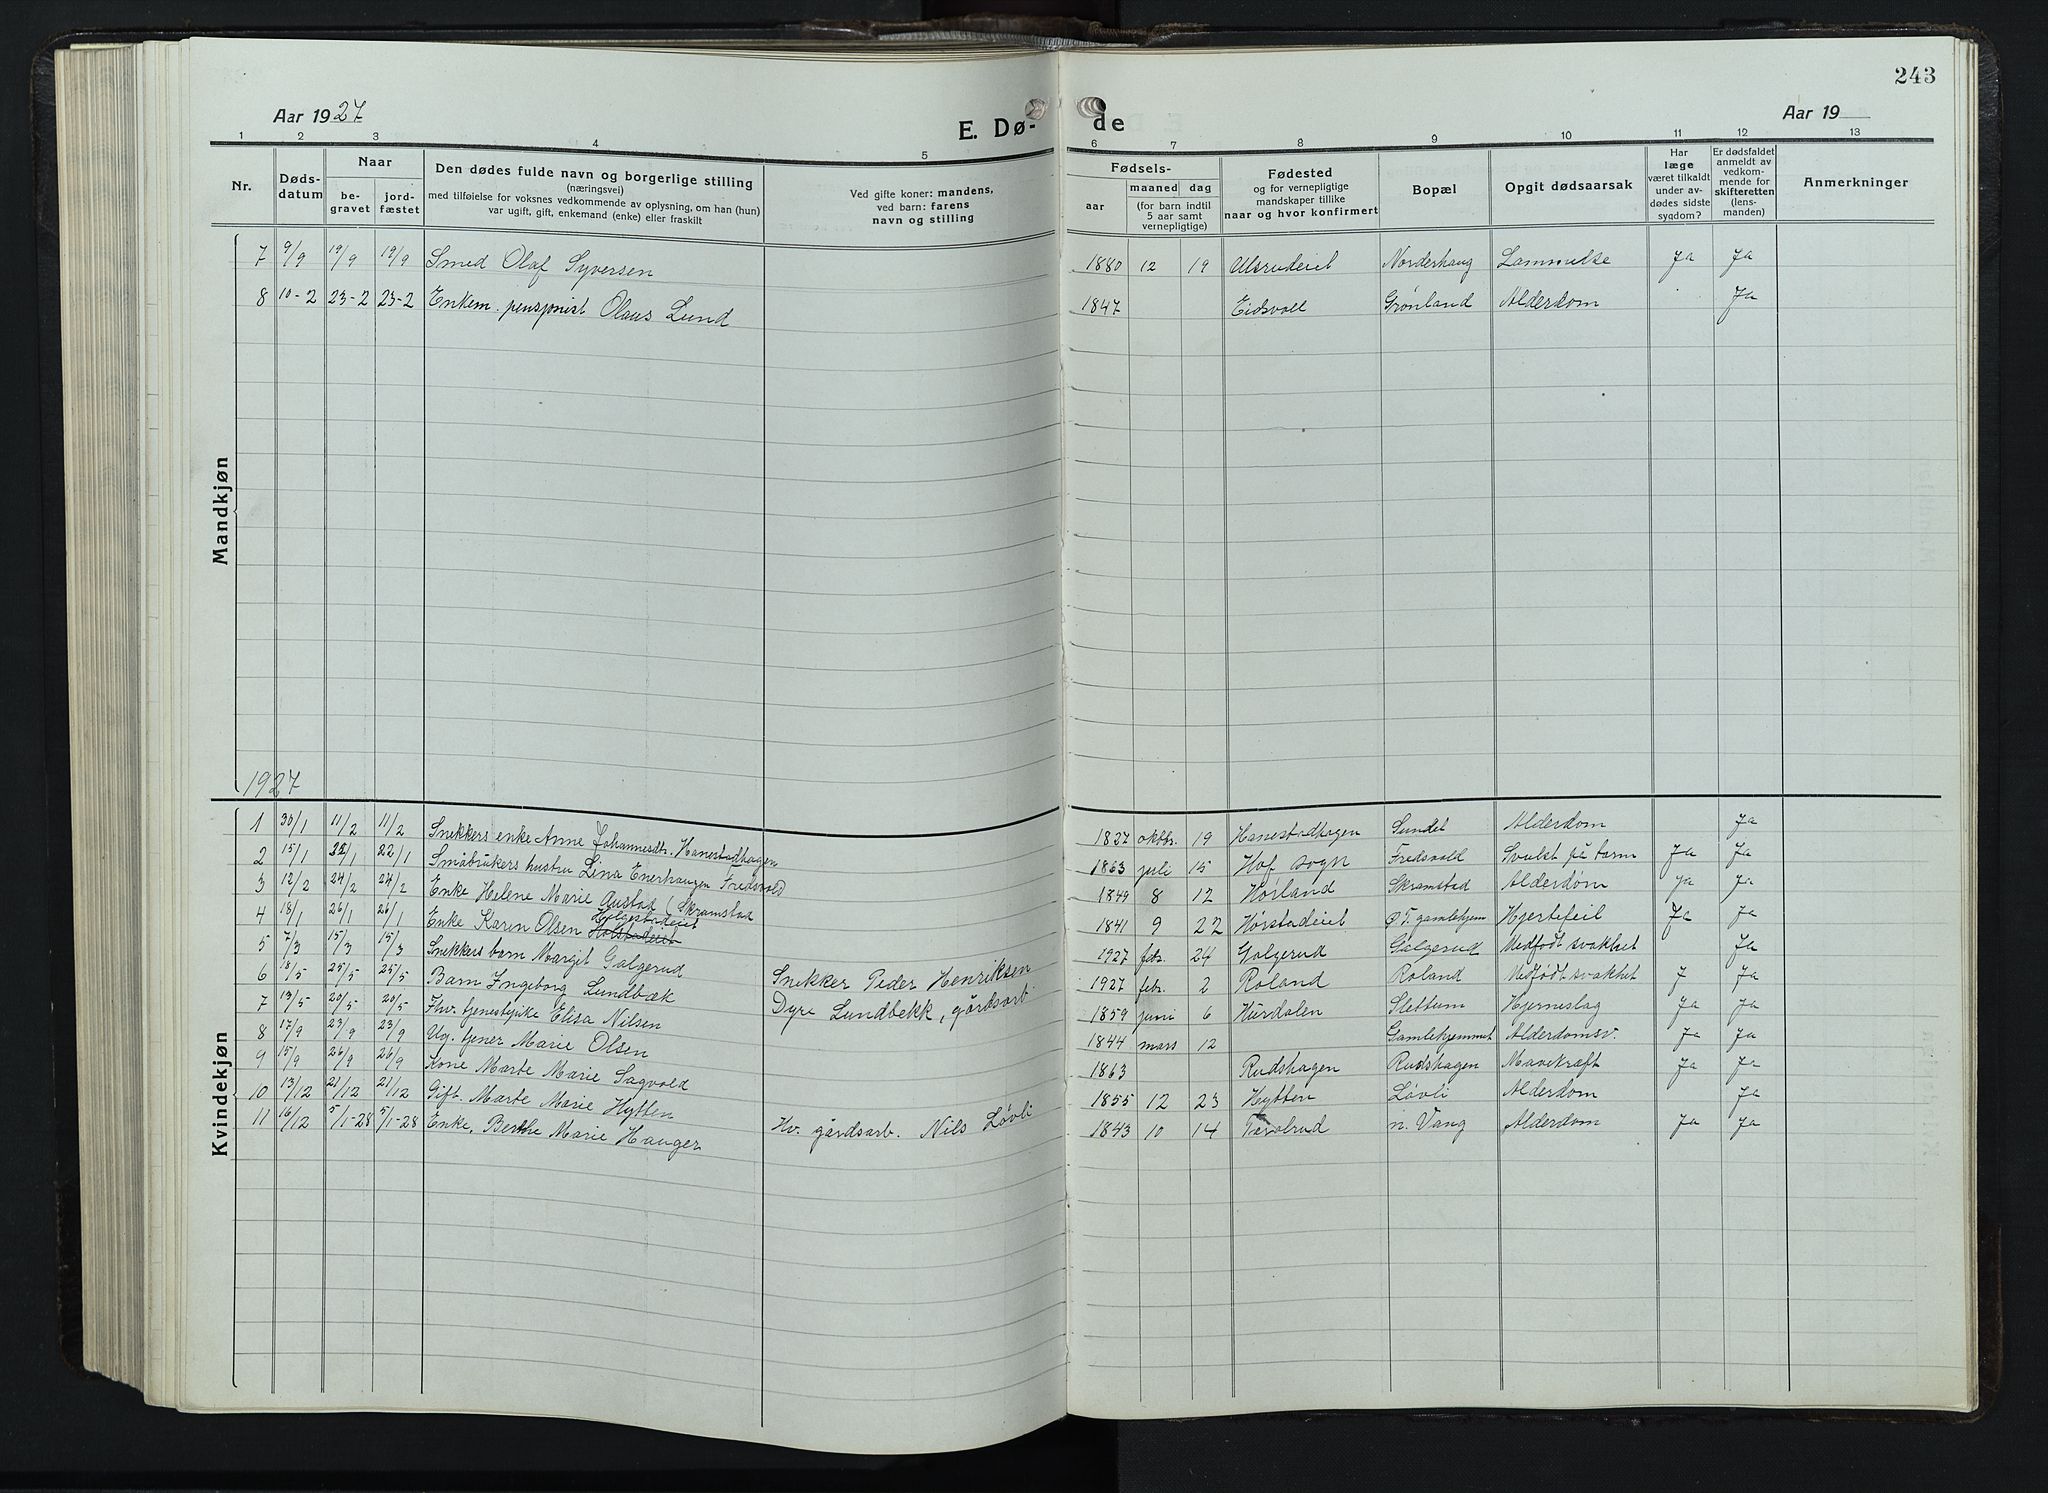 243
Aar 1927
E. Dø-
de
Aar 19
1 2 3 4 5 6 7 8 9 10 11 12 13
Nr.
Døds-
datum
Naar
be-
gravet
jord-
fæstet
Den dødes fulde navn og borgerlige stilling
(næringsvei)
med tilføielse for voksnes vedkommende av oplysning, om han (hun)
var ugift, gift, enkemand (enke) eller fraskilt
Ved gifte koner: mandens,
ved barn: farens
navn og stilling
Fødsels-
aar
maaned dag
(for barn indtil
5 aar samt
vernepligtige)
Fødested
og for vernepligtige
mandskaper tillike
naar og hvor konfirmert
Bopæl
Opgit dødsaarsak
Har
læge
været tilkaldt
under av-
dødes sidste
sygdom?
Er dødsfaldet
anmeldt av
vedkom-
mende for
skifteretten
(lens-
manden)
Anmerkninger
Mandkjøn
7 9/9 19/9 19/9 Smed Olaf Syversen 1880 12 19 Ulsrudeiet Norderhaug Lammelse Ja Ja
8 10-2 23-2 23-2 Enkem. pensjonist Olaus Lund 1847 Eidsvoll Grønland Alderdom Ja
1927
Kvindekjøn
1 30/1 11/2 11/2 Snekkers enke Anne Johannesdtr. Hanestadhagen 1827 oktbr. 19 Hanestadhagen Sundet Alderdom Ja
2 15/1 22/1 22/1 Småbrukers hustru Lina Enerhaugen Fredsvold 1863 juli 15 Hof sogn Fredsvold Svulst på tarm Ja Ja
3 12/2 24/2 24/2 Enke Helene Marie Austad (Skramstad 1849 8 12 Horland Skramstad Alderdom Ja Ja
4 18/1 26/1 26/1 Enke Karen Olsen Helgestadeiet 1841 9 22 Hørstadeiet Ø.T. gamlehjem Hjertefeil Ja Ja
5 7/3 15/3 15/3 Snekkers barn Margit Galgerud Snekker Peder Henriksen 1927 febr. 24 Galgerud Galgerud Medfødt svakhet Ja
6 18/5 25/5 25/5 Barn Ingeborg Lundbæk Dyre Lundbekk, gårdsarb. 1927 febr. 2 Roland Roland Medfødt svakhet J Ja
7 13/5 20/5 20/5 Fhv. tjenestepike Elisa Nilsen 1859 juni 6 Hurdalen Slettum Hjerneslag Ja Ja
8 17/9 23/9 23/9 Ug. tjener Marie Olsen 1844 mars 12 Gamlehjemmet Alderdomsv. Ja Ja
9 15/9 26/9 26/9 Kone Marte Marie Sagvold 1863 Rudshagen Rudshagen Mavekræft Ja Ja
10 13/12 21/12 21/12 Gift. Marte Marie Hytten Hv. gårdsarb. Nils Løvli 1855 12 23 Hytten Løvli Alderdom Ja
11 16/12 5/1-28 5/1-28 Enke, Berthe Marie Hauger 1843 10 14 Taralrud n. Vang Alderdom Ja Ja